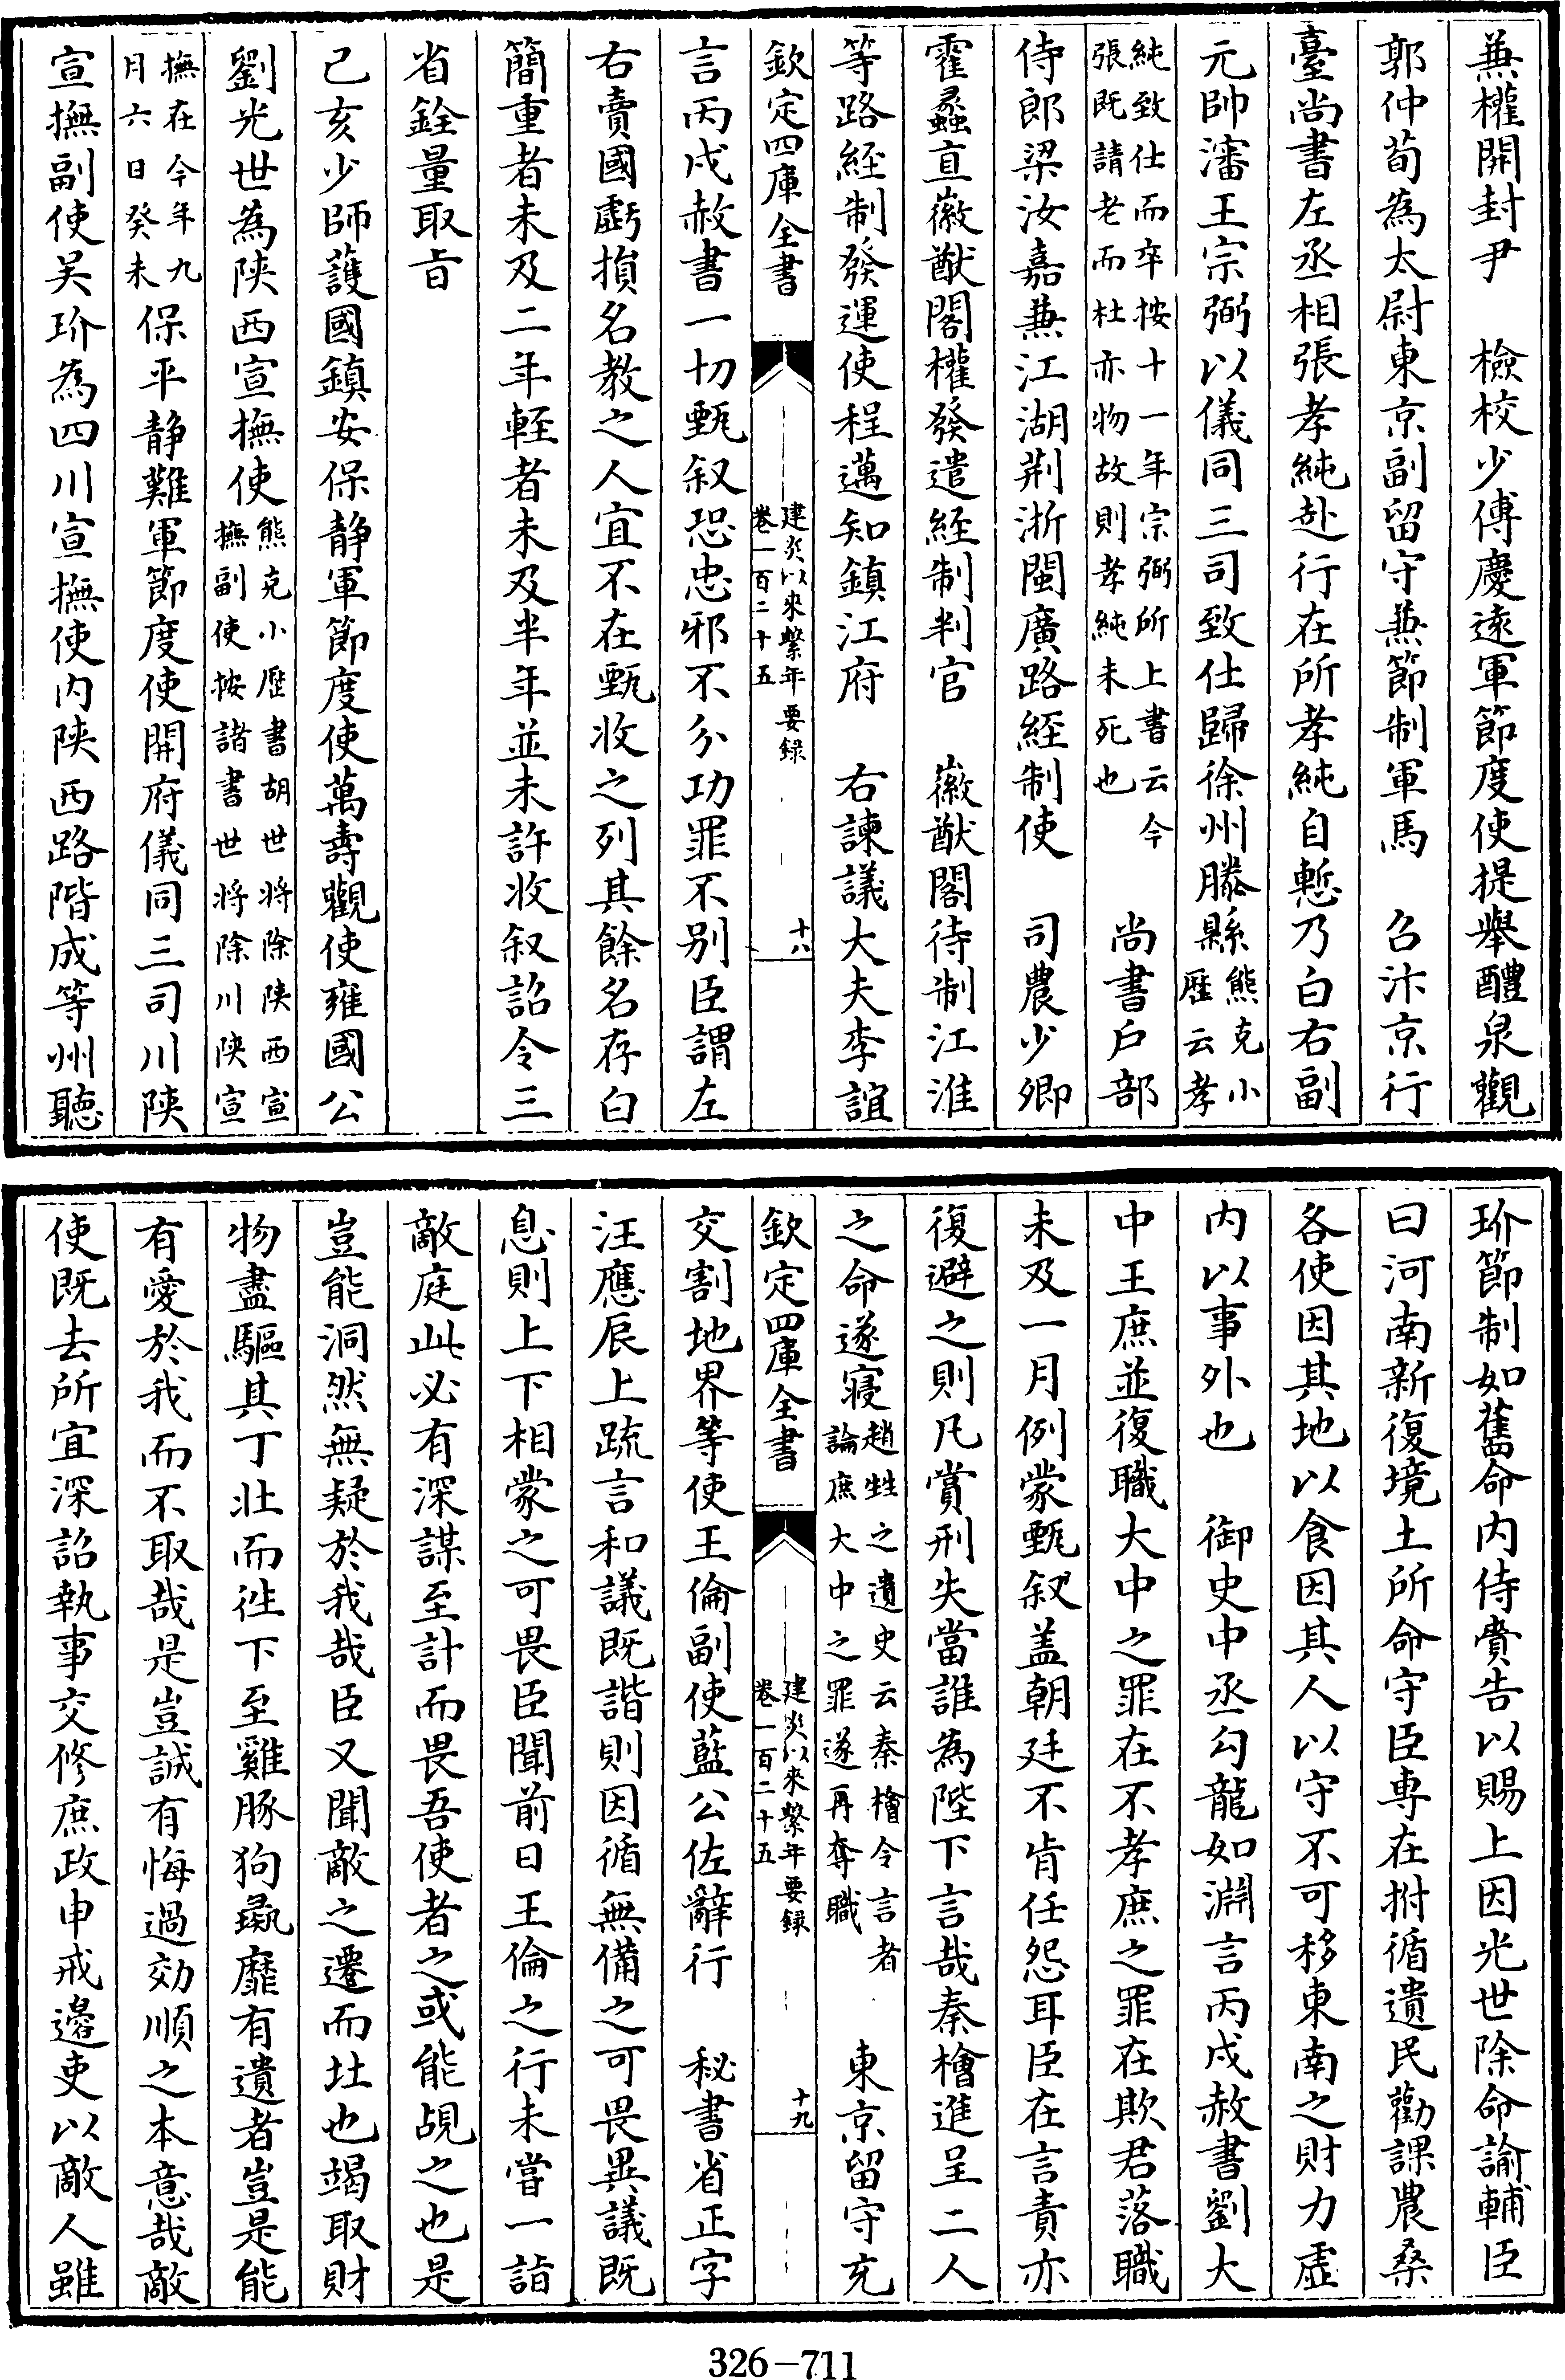 兼權開封尹　檢校少傅慶遠軍節度使提舉醴泉觀
郭仲荀為太尉東京副留守兼節制軍馬　召汴京行
臺尚書左丞相張孝純赴行在所孝純自慙乃白右副
元帥瀋王宗弼以儀同三司致仕歸徐州滕縣熊克小歷云孝
純致仕而卒按十一年宗弼所上書云今張既請老而杜亦物故則孝純未死也　尚書戶部
侍郎梁汝嘉兼江湖荆浙閩廣路經制使　司農少卿
霍蠡直徽猷閣權發遣經制判官　徽猷閣待制江淮
等路經制發運使程邁知鎮江府　右諫議大夫李誼
欽定四庫全書　建炎以來繫年要録卷一百二十五　十八
言丙戌赦書一切甄叙恐忠邪不分功罪不别臣謂左
右賣國虧損名教之人宜不在甄收之列其餘名存白
簡重者未及二年輕者未及半年並未許收叙詔令三
省銓量取旨
己亥少師護國鎮安保静軍節度使萬壽觀使雍國公
劉光世為陝西宣撫使熊克小歷書胡世將除陝西宣撫副使按諸書世將除川陝宣
撫在今年九月六日癸未保平静難軍節度使開府儀同三司川陝
宣撫副使吴玠為四川宣撫使内陝西路階成等州聽
玠節制如舊命内侍賫告以賜上因光世除命諭輔臣
曰河南新復境土所命守臣專在拊循遺民勸課農桑
各使因其地以食因其人以守不可移東南之財力虚
内以事外也　御史中丞勾龍如淵言丙戌赦書劉大
中王庶並復職大中之罪在不孝庶之罪在欺君落職
未及一月例蒙甄叙盖朝廷不肯任怨耳臣在言責亦
復避之則凡賞刑失當誰為陛下言哉秦檜進呈二人
之命遂寢趙甡之遺史云秦檜令言者論庶大中之罪遂再奪職　東京留守充
欽定四庫全書　建炎以來繫年要録卷一百二十五　十九
交割地界等使王倫副使藍公佐辭行　秘書省正字
汪應辰上疏言和議既諧則因循無備之可畏異議既
息則上下相蒙之可畏臣聞前日王倫之行未嘗一詣
敵庭此必有深謀至計而畏吾使者之或能覘之也是
豈能洞然無疑於我哉臣又聞敵之遷而北也竭取財
物盡驅其丁壯而徃下至雞豚狗彘靡有遺者豈是能
有愛於我而不取哉是豈誠有悔過効順之本意哉敵
使既去所宜深詔執事交修庶政申戒邊吏以敵人雖
326-711